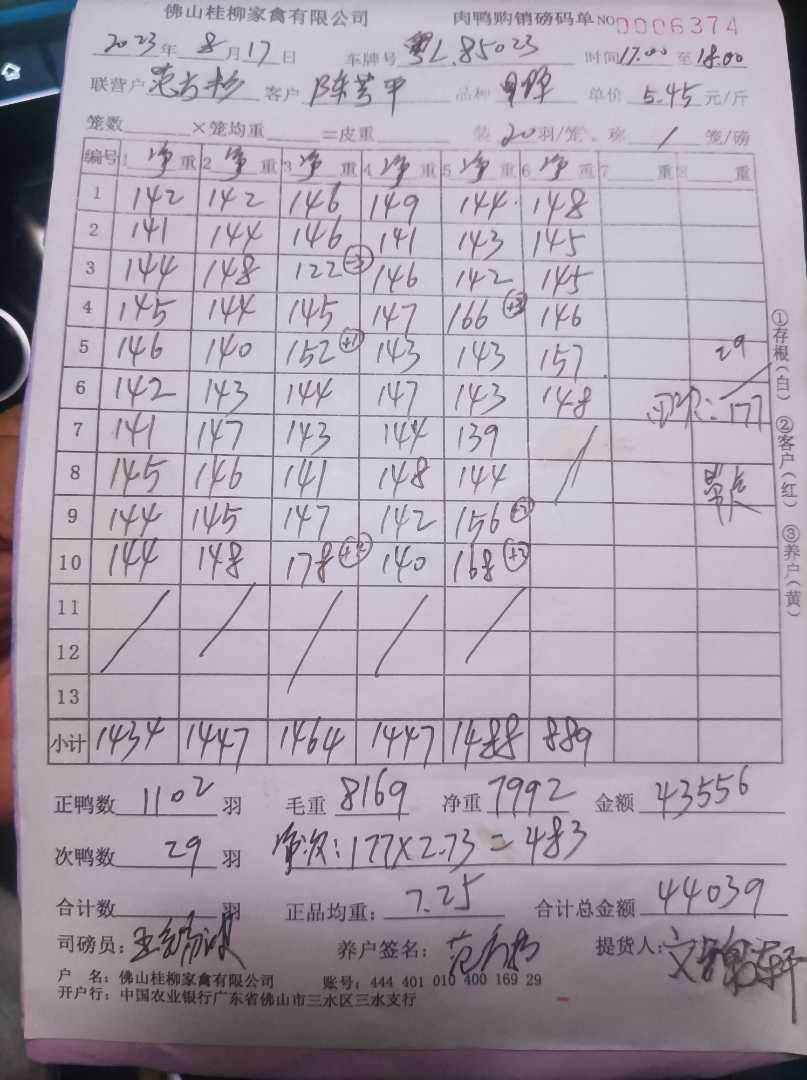 佛山桂柳家禽有限公司 肉鸭购销磅码单 NO 0006374
2023年 8月17日 车牌号 粤L.85023 时间17.00至18.00
联营户 客户 陈 平 品种 单价 5.45 元/斤
笼数 ×笼均重 =皮重 装 20 羽/笼、称 1 笼/磅
编号 1 净 重 2 净 重 3 净 重 4 净 重 5 净 重 6 净 重 7 重 8 重
1 142 142 146 149 144 148
2 141 144 146 141 143 145
3 144 148 122 -3 146 142 145
4 145 144 145 147 166 146
5 146 140 152 +1 143 143 157 29
6 142 143 144 147 143 148 : 177
7 141 147 143 144 139
8 145 146 141 148 144
9 144 145 147 142 156
10 144 148 178 +4 140 168
11
12
13
小计 1434 1447 1464 1447 1488 889
正鸭数 1102 羽 毛重 8169 净重 7992 金额 43556
次鸭数 29 羽 净次: 177×2.73=483
合计数 羽 正品均重: 7.25 合计总金额 44039
司磅员: 养户签名: 提货人:
户 名: 佛山桂柳家禽有限公司 账号: 444 401 010 400 169 29
开户行: 中国农业银行广东省佛山市三水区三水支行
①存根(白) ②客户(红) ③养户(黄)